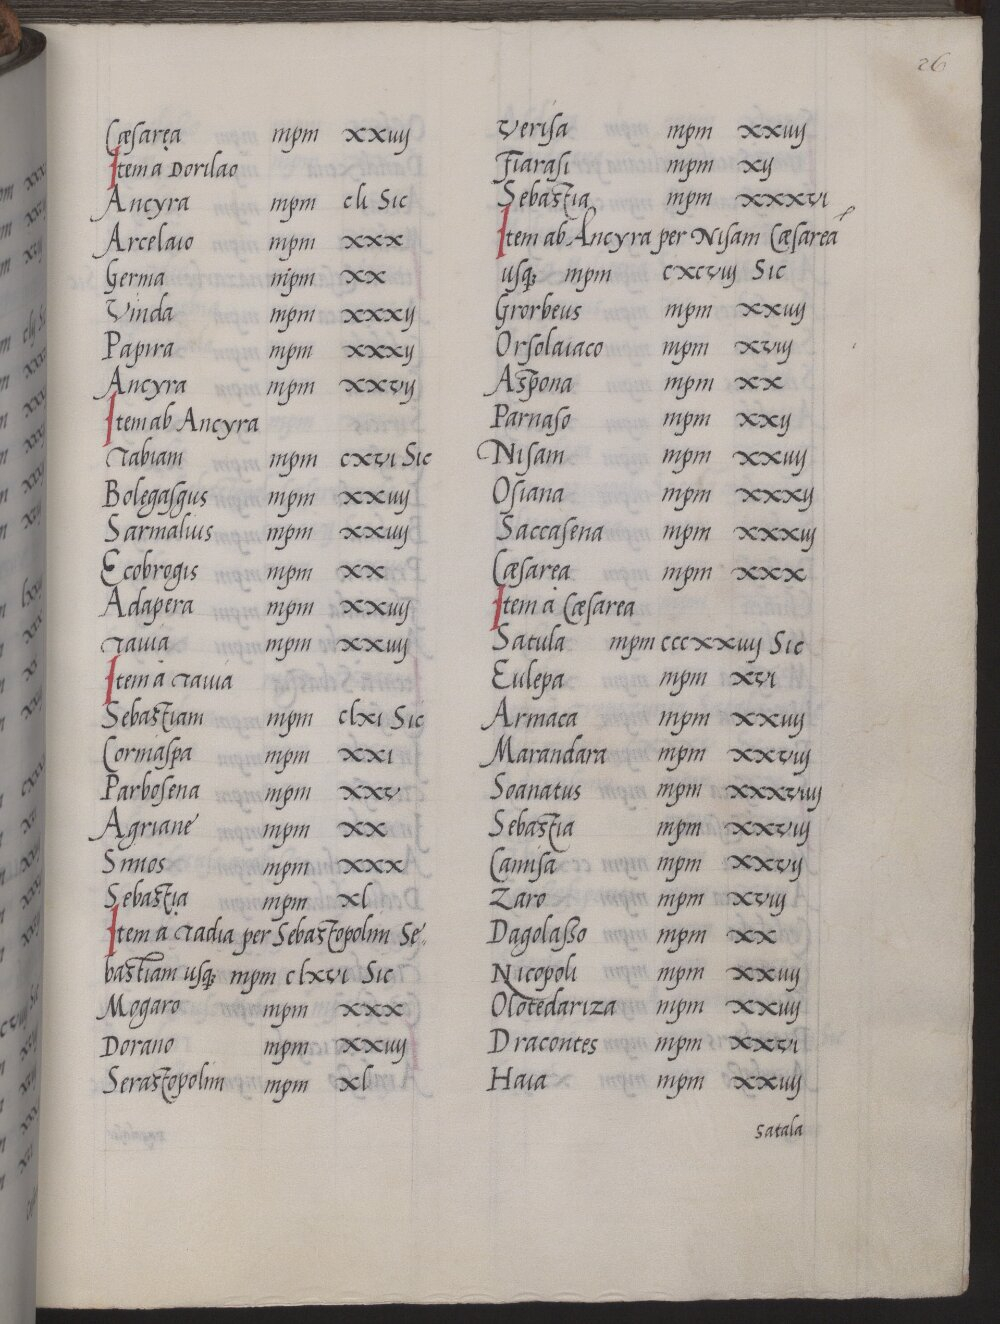 26
Cæsarea mpm xxiiij
Item a Dorilao
Ancyra mpm cli Sic
Arcelaio mpm xxx
Germa mpm xx
Vinda mpm xxxij
Papira mpm xxxij
Ancyra mpm xxvij
Item ab Ancyra
Tabiam mpm cxvi Sic
Bolegasgus mpm xxiiij
Sarmalius mpm xxiiij
Ecobrogis mpm xx
Adapera mpm xxiiij
Tauia mpm xxiiij
Item a Tauia
Sebastiam mpm clxi Sic
Cormaspa mpm xxi
Parbosena mpm xxv
Agriane mpm xx
Simos mpm xxx
Sebastia mpm xl
Item a Tadia per Sebastopolim Se-
bastiam usq; mpm clxvi Sic
Mogaro mpm xxx
Dorano mpm xxiiij
Serastopolim mpm xl
Verisa mpm xxiiij
Fiarasi mpm xij
Sebastia mpm xxxvi
Item ab Ancyra per Nisam Cæsarea
usq; mpm cxcviij Sic
Grorbeus mpm xxiiij
Orsolaiaco mpm xviij
Aspona mpm xx
Parnaso mpm xxij
Nisam mpm xxiiij
Osiana mpm xxxij
Saccasena mpm xxxiij
Cæsarea mpm xxx
Item a Cæsarea
Satula mpm cccxxiiij Sic
Eulepa mpm xvi
Armaca mpm xxiiij
Marandara mpm xxviij
Soanatus mpm xxxviiij
Sebastia mpm xxviij
Camisa mpm xxvij
Zaro mpm xviij
Dagolasso mpm xx
Nicopoli mpm xxiiij
Olotedariza mpm xxiiij
Dracontes mpm xxvi
Haia mpm xxiiij
Satala